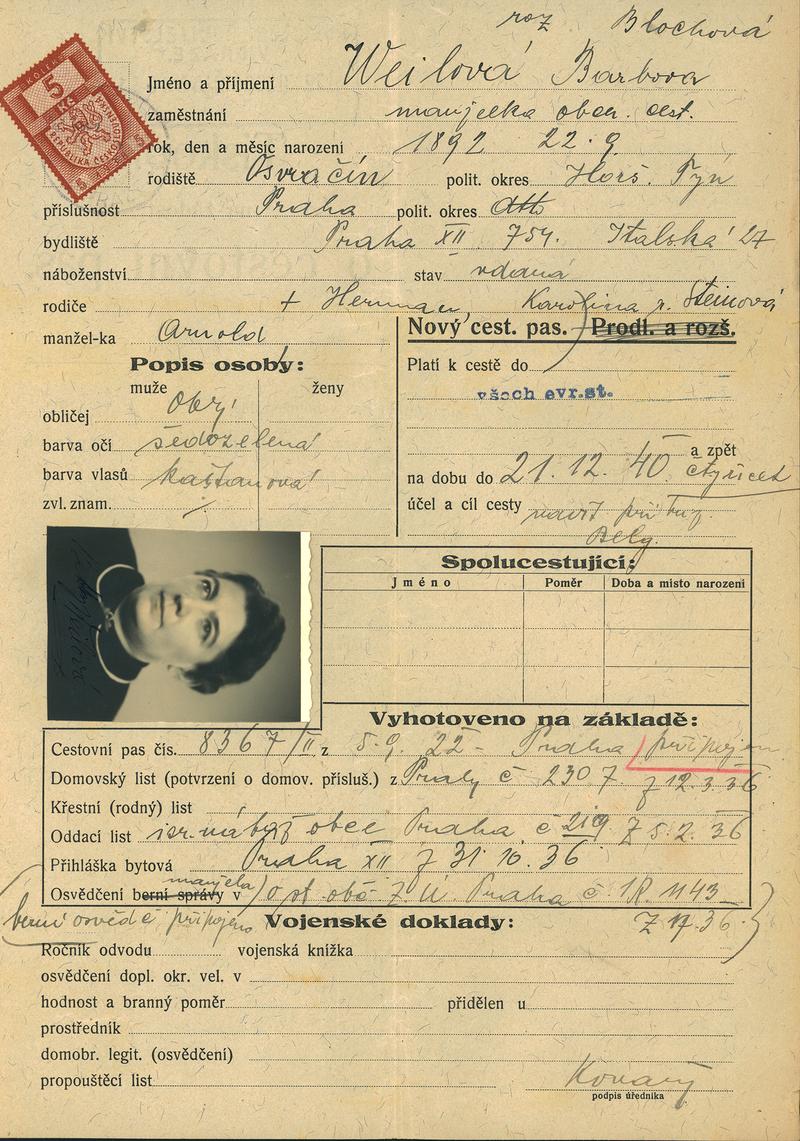 roz Blochová
KOLEK
5
Kč
REPUBLIKA ČESKO
Jméno a příjmení Weilová Barbora
zaměstnání manželka obch. cest.
rok, den a měsíc narození 1892 22.9
rodiště Osvračín polit. okres Horš. Týn
příslušnost Praha polit. okres
bydliště Praha XII. 754. Italská 27
náboženství stav vdaná
rodiče + Herman, Karolina r. Steinová
manžel-ka Arnold
Nový cest. pas. Prodl. a rozš.
Popis osoby:
muže ženy
obličej
barva očí šedozelená
barva vlasů kaštanová
zvl. znam. /
Platí k cestě do
všech evr.st.
a zpět
na dobu do 21.12.40 čtyřicet
účel a cíl cesty návšt příbuz.
Belg.
Spolucestující:
Jméno Poměr Doba a místo narození
Vyhotoveno na základě:
Cestovní pas čís. 8367/II z 5.9.22 - Praha připojen
Domovský list (potvrzení o domov. přísluš.) z Prahy č 2307. z 12.3.36
Křestní (rodný) list
Oddací list isr. obce Praha č 219 z 5.2.36
Přihláška bytová Praha XII z 31.10.36
manžela
Osvědčení berní správy v Praha č. 1R. 1143
berní osvědč připojeno
Vojenské doklady:
Ročník odvodu vojenská knížka
osvědčení dopl. okr. vel. v
hodnost a branný poměr přidělen u
prostředník
domobr. legit. (osvědčení)
propouštěcí list
podpis úředníka